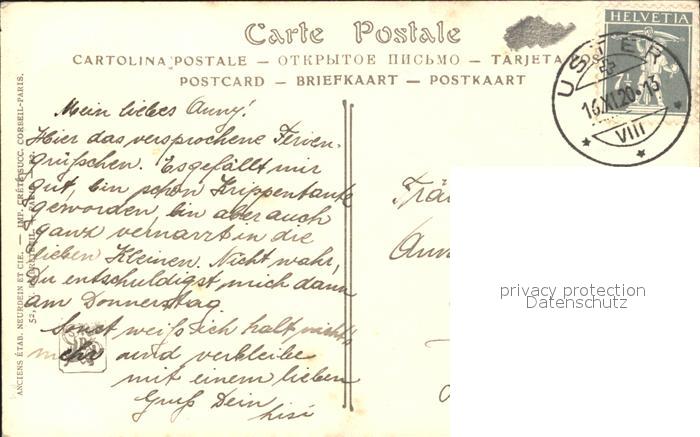 Carte Postale
CARTOLINA POSTALE — ОТКРЫТОЕ ПИСЬМО — TARJETA
POSTCARD — BRIEFKAART — POSTKAART
HELVETIA
USTER
16.XI.20.-13
VIII
Mein liebes Anny!
Hier das versprochene Ferien-
grüßchen. Es gefällt mir
gut, bin schon Krippentante
geworden, bin aber auch
ganz vernarrt in die
lieben Kleinen. Nicht wahr,
Du entschuldigst mich dann
am Donnerstag.
Sonst weiß ich halt nichts
mehr und verbleibe
mit einem lieben
Gruß Dein
Lisi
Frä
Ann
privacy protection
Datenschutz
ANCIENS ÉTAB. NEURDEIN ET CIE. — IMP. CRÉTÉ SUCC. CORBEIL-PARIS.
52,